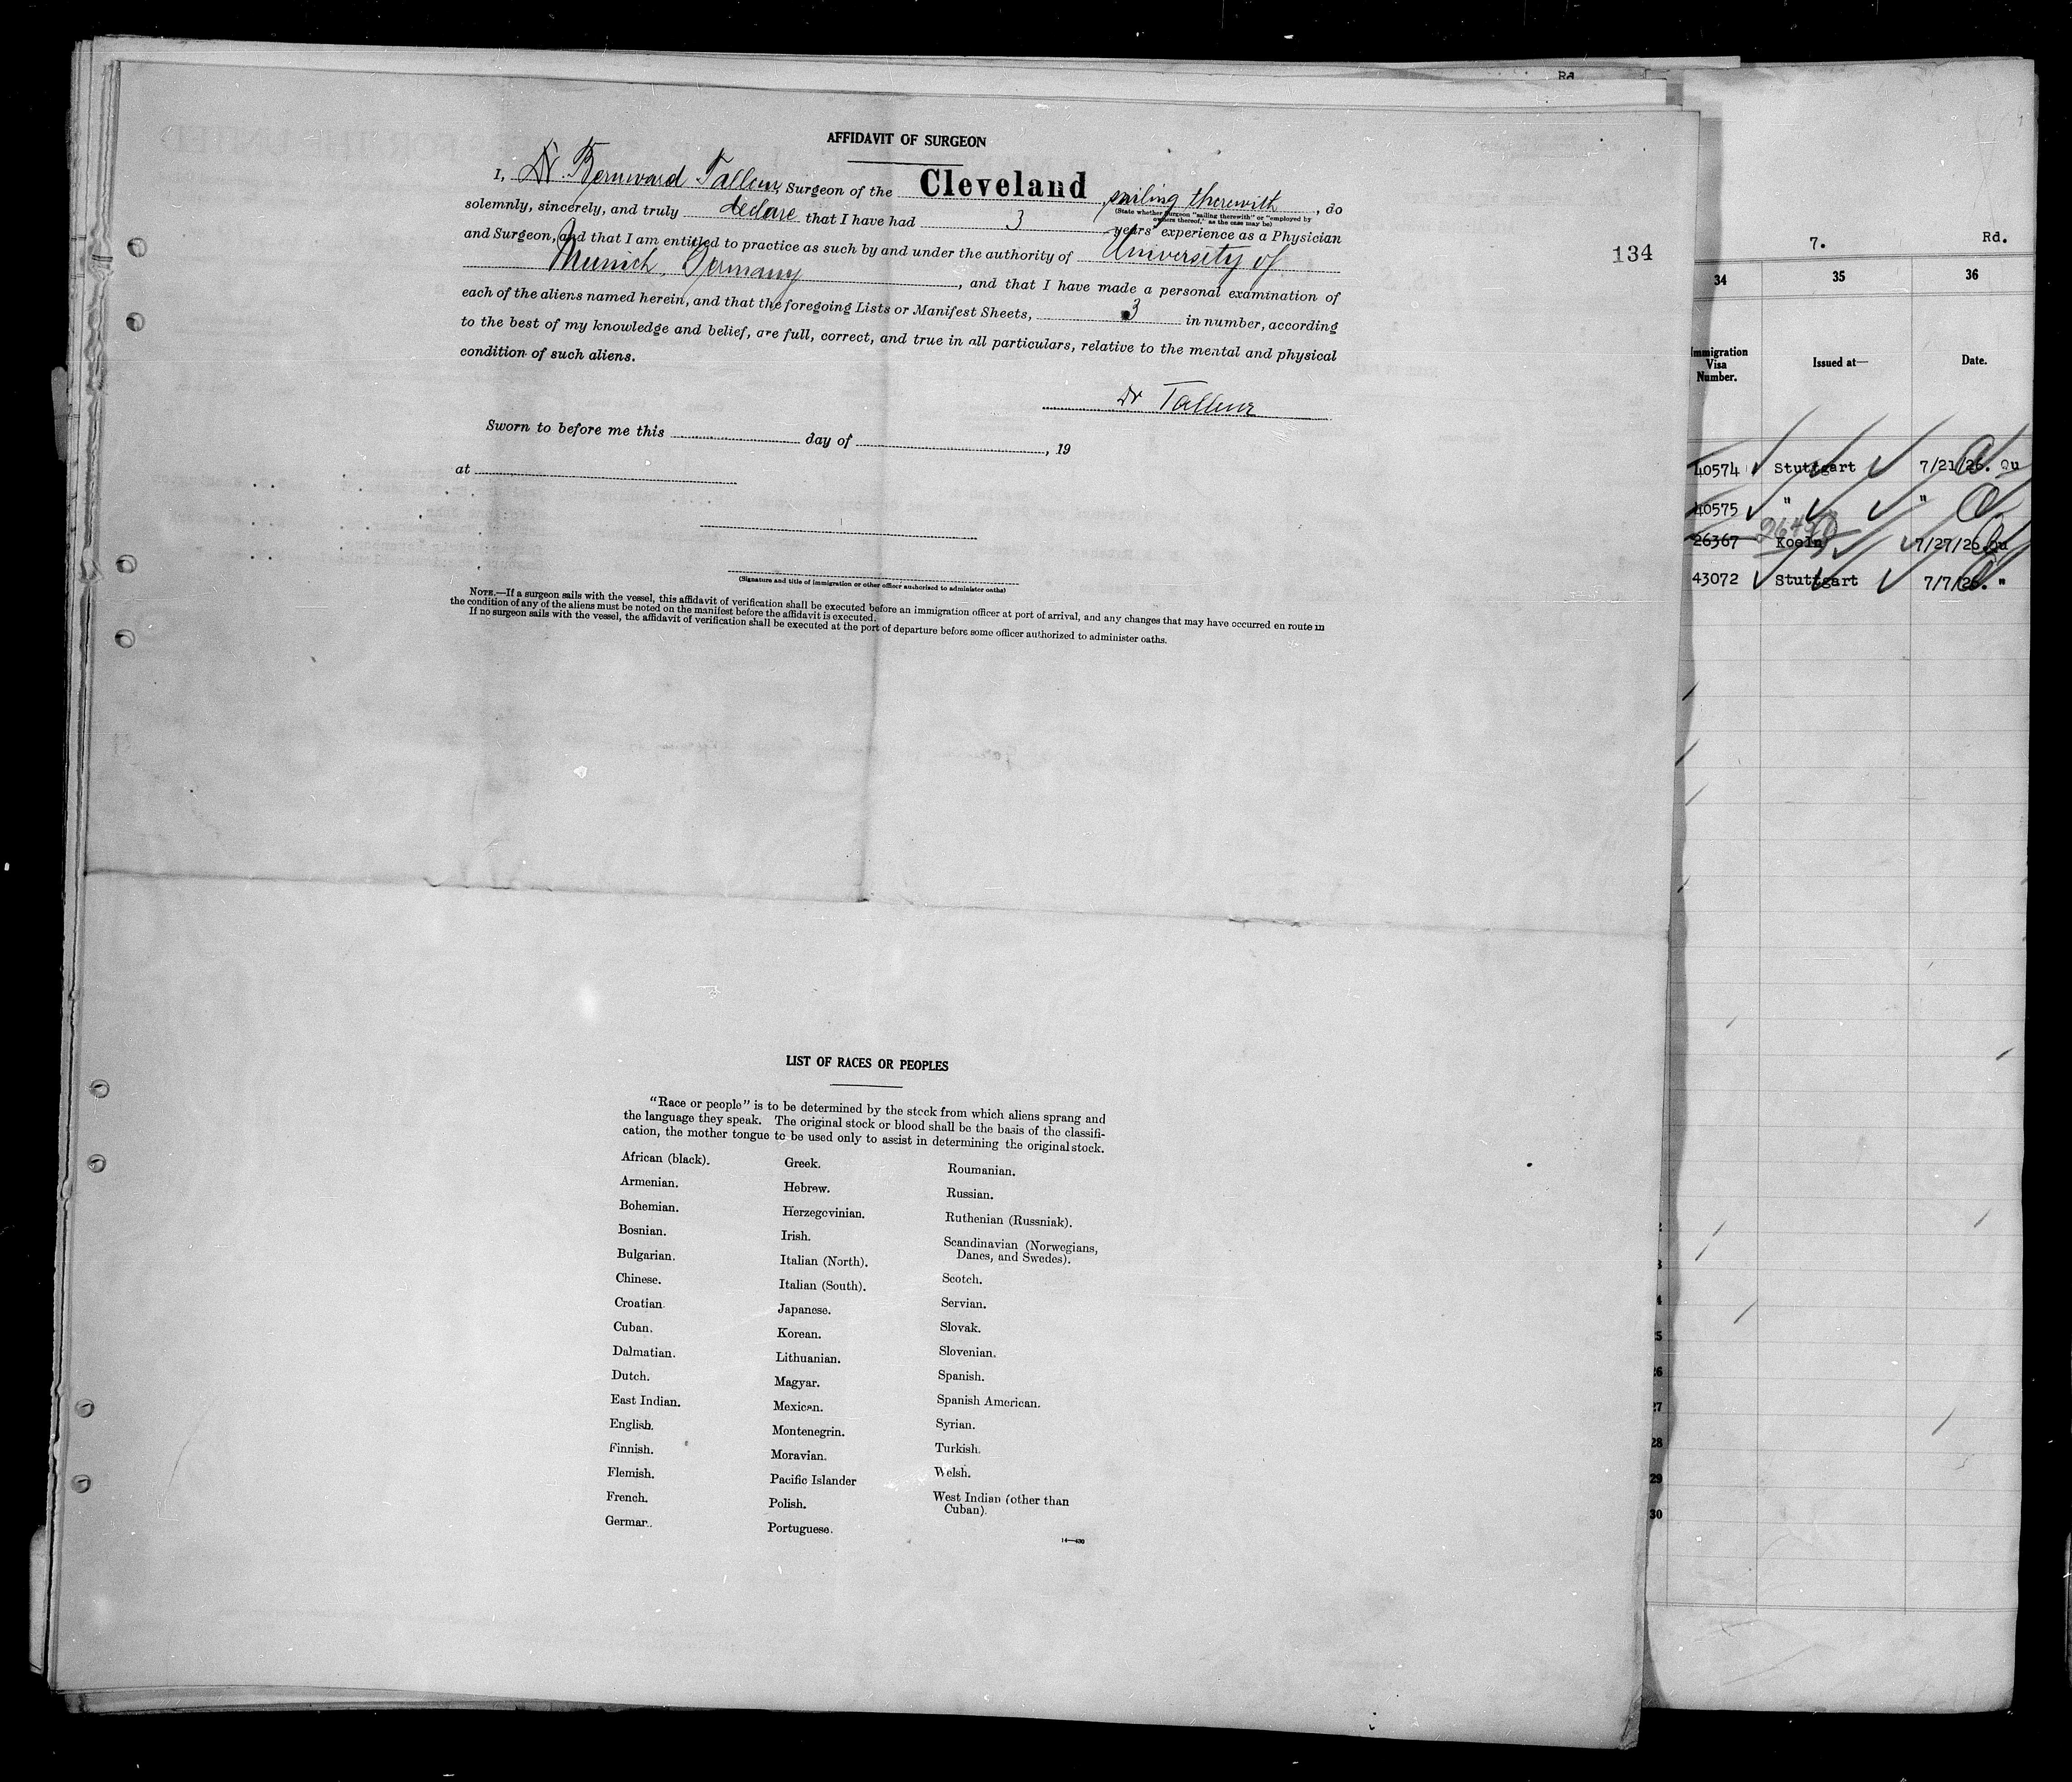 Rd
AFFIDAVIT OF SURGEON
I, Dr. Bernward Tallen, Surgeon of the Cleveland sailing therewith, do
(State whether surgeon "sailing therewith" or "employed by
owners thereof," as the case may be)
solemnly, sincerely, and truly declare that I have had 3 years' experience as a Physician
and Surgeon, and that I am entitled to practice as such by and under the authority of University of
Munich, Germany, and that I have made a personal examination of
each of the aliens named herein, and that the foregoing Lists or Manifest Sheets, 3 in number, according
to the best of my knowledge and belief, are full, correct, and true in all particulars, relative to the mental and physical
condition of such aliens.
Dr
Sworn to before me this day of , 19
at
(Signature and title of immigration or other officer authorized to administer oaths)
NOTE.—If a surgeon sails with the vessel, this affidavit of verification shall be executed before an immigration officer at port of arrival, and any changes that may have occurred en route in
the condition of any of the aliens must be noted on the manifest before the affidavit is executed.
If no surgeon sails with the vessel, the affidavit of verification shall be executed at the port of departure before some officer authorized to administer oaths.
134
LIST OF RACES OR PEOPLES
"Race or people" is to be determined by the stock from which aliens sprang and
the language they speak. The original stock or blood shall be the basis of the classifi-
cation, the mother tongue to be used only to assist in determining the original stock.
African (black).
Armenian.
Bohemian.
Bosnian.
Bulgarian.
Chinese.
Croatian.
Cuban.
Dalmatian.
Dutch.
East Indian.
English.
Finnish.
Flemish.
French.
German.
Greek.
Hebrew.
Herzegovinian.
Irish.
Italian (North).
Italian (South).
Japanese.
Korean.
Lithuanian.
Magyar.
Mexican.
Montenegrin.
Moravian.
Pacific Islander
Polish.
Portuguese.
Roumanian.
Russian.
Ruthenian (Russniak).
Scandinavian (Norwegians,
Danes, and Swedes).
Scotch.
Servian.
Slovak.
Slovenian.
Spanish.
Spanish American.
Syrian.
Turkish.
Welsh.
West Indian (other than
Cuban).
14—430
7. Rd.
34 35 36
Immigration
Visa
Number.
Issued at—
Date.
40574 Stuttgart 7/21/26. Qu
40575 " "
26367 Koeln 7/27/26. Qu
43072 Stuttgart 7/7/26. "
26
27
28
29
30